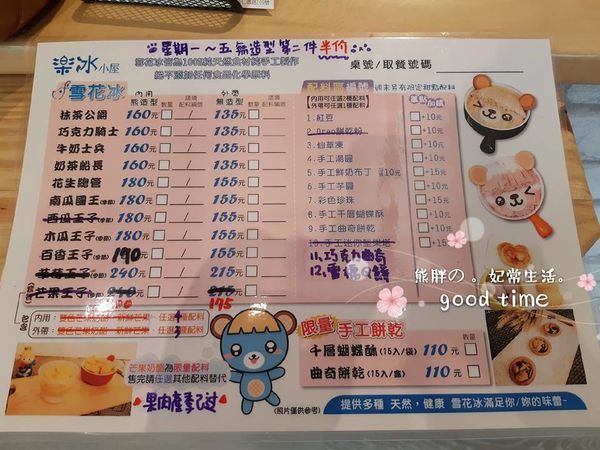 星期一～五 無造型第二件半价
樂冰小屋
雪花冰皆為100%純天然食材純手工製作
絕不添加任何食品化學原料
桌號/取餐號碼
雪花冰
內用
熊造型 數量 配料編號
外帶
無造型 數量 配料編號
抹茶公爵 160元 / 135元 /
巧克力騎士 160元 / 135元 /
牛奶士兵 160元 / 135元 /
奶茶船長 160元 / 135元 /
花生總管 180元 / 155元 /
南瓜國王(季節) 180元 / 155元 /
西瓜王子(季節) 180元 / 155元 /
木瓜王子(季節) 180元 / 155元 /
百香王子(季節) 190元 / 155元 /
草莓王子(季節) 240元 / 215元 /
芒果王子(季節) 240元 215元
195
內用
外帶
配料區 編號
內用可任選2種配料
外帶可任選1種配料
單點 加購
1.紅豆 +10元
2.Oreo餅乾粉 +10元
3.仙草凍 +10元
4.手工湯圓 +10元
5.手工鮮奶布丁 +15元
6.手工芋圓 +10元
7.彩色珍珠 +15元
8.手工千層蝴蝶酥 +15
9.手工曲奇餅乾 +10
10.手工迷你聖代塔
11.巧克力曲奇
12.雪椽Q餅
熊胖の。妃常生活。
good time
限量 手工餅乾
數量
千層蝴蝶酥(15入/袋) 110元
曲奇餅乾(15入/盒) 110元
芒果奶酪為限量配料
售完請任選其他配料替代
果肉產季已过
(照片僅供參考)
提供多種 天然，健康 雪花冰滿足你/妳的味蕾~